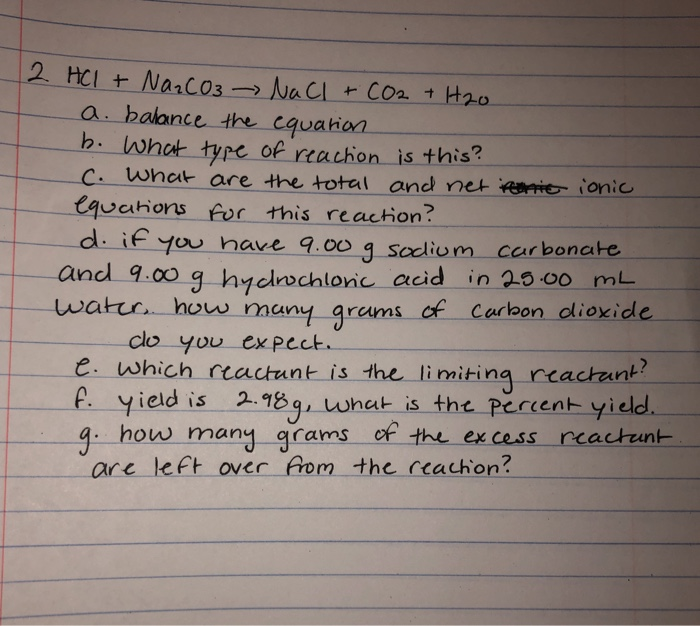 2. HCl + Na₂CO₃ → NaCl + CO₂ + H₂O
a. balance the equation
b. What type of reaction is this?
C. What are the total and net ionic
equations for this reaction?
d. if you have 9.00 g sodium carbonate
and 9.00 g hydrochloric acid in 25.00 mL
water, how many grams of carbon dioxide
do you expect.
e. Which reactant is the limiting reactant?
f. yield is 2.98g, what is the percent yield.
g. how many grams of the excess reactant
are left over from the reaction?